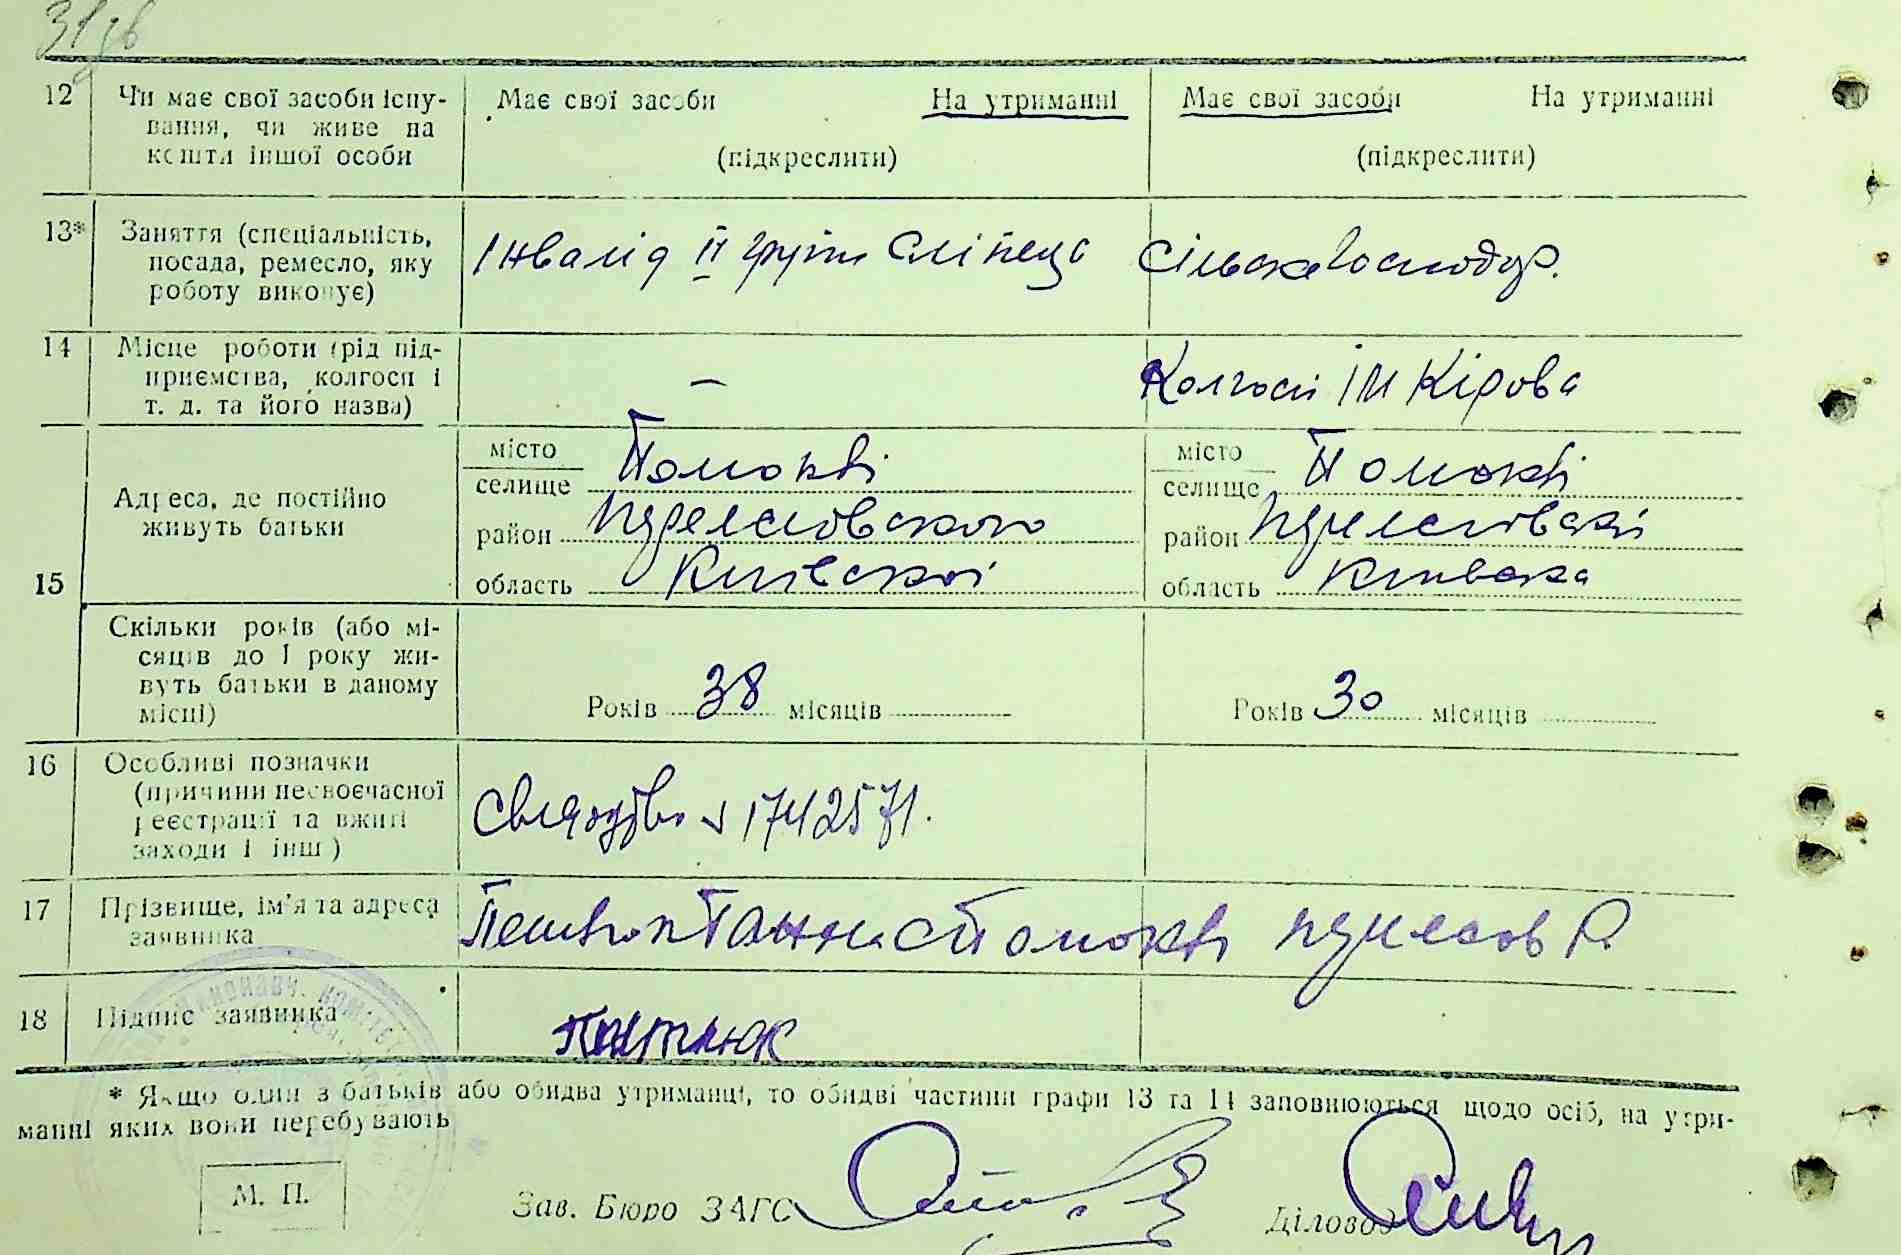 12 Чи має свої засоби існу-
вання, чи живе на
кошти іншої особи
Має свої засоби На утриманні
(підкреслити)
Має свої засоби На утриманні
(підкреслити)
13* Заняття (спеціальність,
посада, ремесло, яку
роботу виконує)
Інвалід II групи Сліпець
Сільське господар.
14 Місце роботи (рід під-
приємства, колгосп і
т. д. та його назва)
—
Колгосп ім Кірова
15 Адреса, де постійно
живуть батьки
місто
селище Помоклі
район
область Київської
місто
селище Помоклі
район
область Київська
Скільки років (або мі-
сяців до 1 року жи-
вуть батьки в даному
місці)
Років 38 місяців
Років 30 місяців
16 Особливі позначки
(причини несвоєчасної
реєстрації та вжиті
заходи і інш)
1742571.
17 Прізвище, ім'я та адреса
заявника
Ганна с Помоклі
18 Підпис заявника
* Якщо один з батьків або обидва утриманці, то обидві частини графи 13 та 14 заповнюються щодо осіб, на утри-
манні яких вони перебувають
М. П.
Зав. Бюро ЗАГС
Діловод